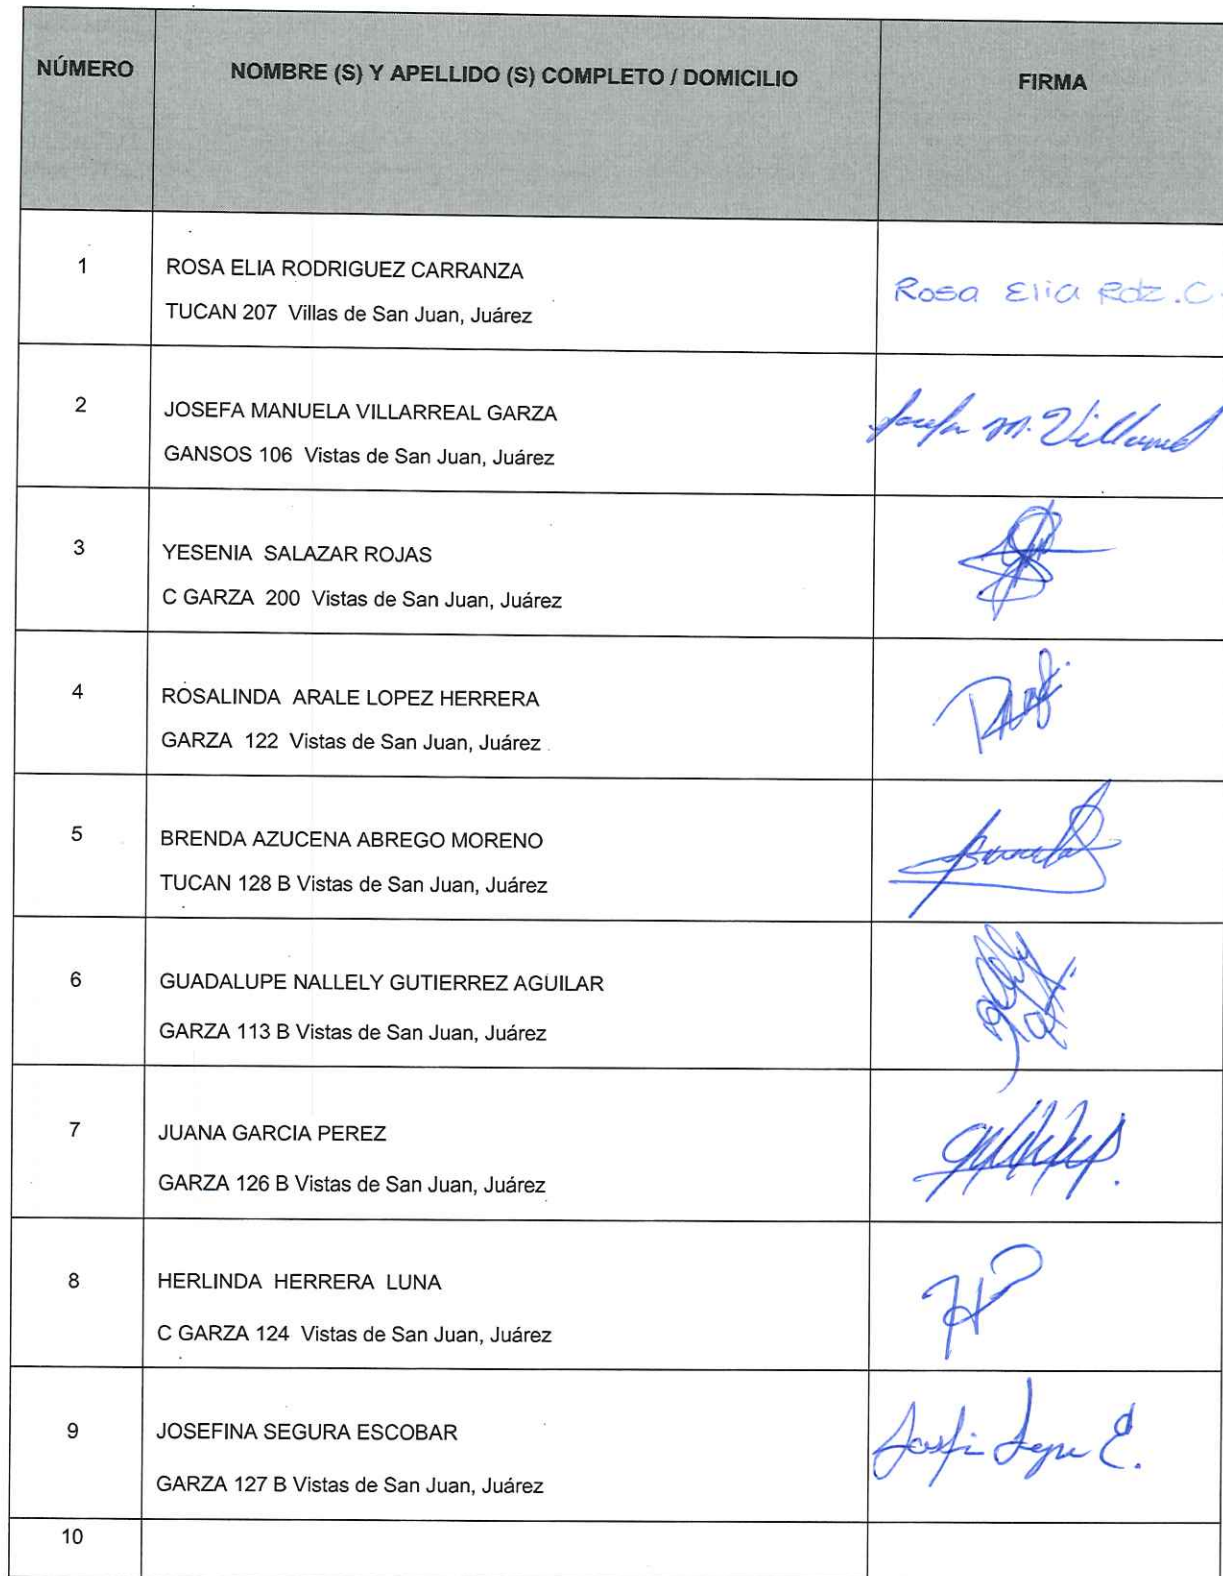 NÚMERO
NOMBRE (S) Y APELLIDO (S) COMPLETO / DOMICILIO
FIRMA
1
ROSA ELIA RODRIGUEZ CARRANZA
TUCAN 207 Villas de San Juan, Juárez
Rosa Elia Rdz.C.
2
JOSEFA MANUELA VILLARREAL GARZA
GANSOS 106 Vistas de San Juan, Juárez
Josefa M. Villarreal
3
YESENIA SALAZAR ROJAS
C GARZA 200 Vistas de San Juan, Juárez
4
ROSALINDA ARALE LOPEZ HERRERA
GARZA 122 Vistas de San Juan, Juárez
5
BRENDA AZUCENA ABREGO MORENO
TUCAN 128 B Vistas de San Juan, Juárez
6
GUADALUPE NALLELY GUTIERREZ AGUILAR
GARZA 113 B Vistas de San Juan, Juárez
7
JUANA GARCIA PEREZ
GARZA 126 B Vistas de San Juan, Juárez
8
HERLINDA HERRERA LUNA
C GARZA 124 Vistas de San Juan, Juárez
9
JOSEFINA SEGURA ESCOBAR
GARZA 127 B Vistas de San Juan, Juárez
10